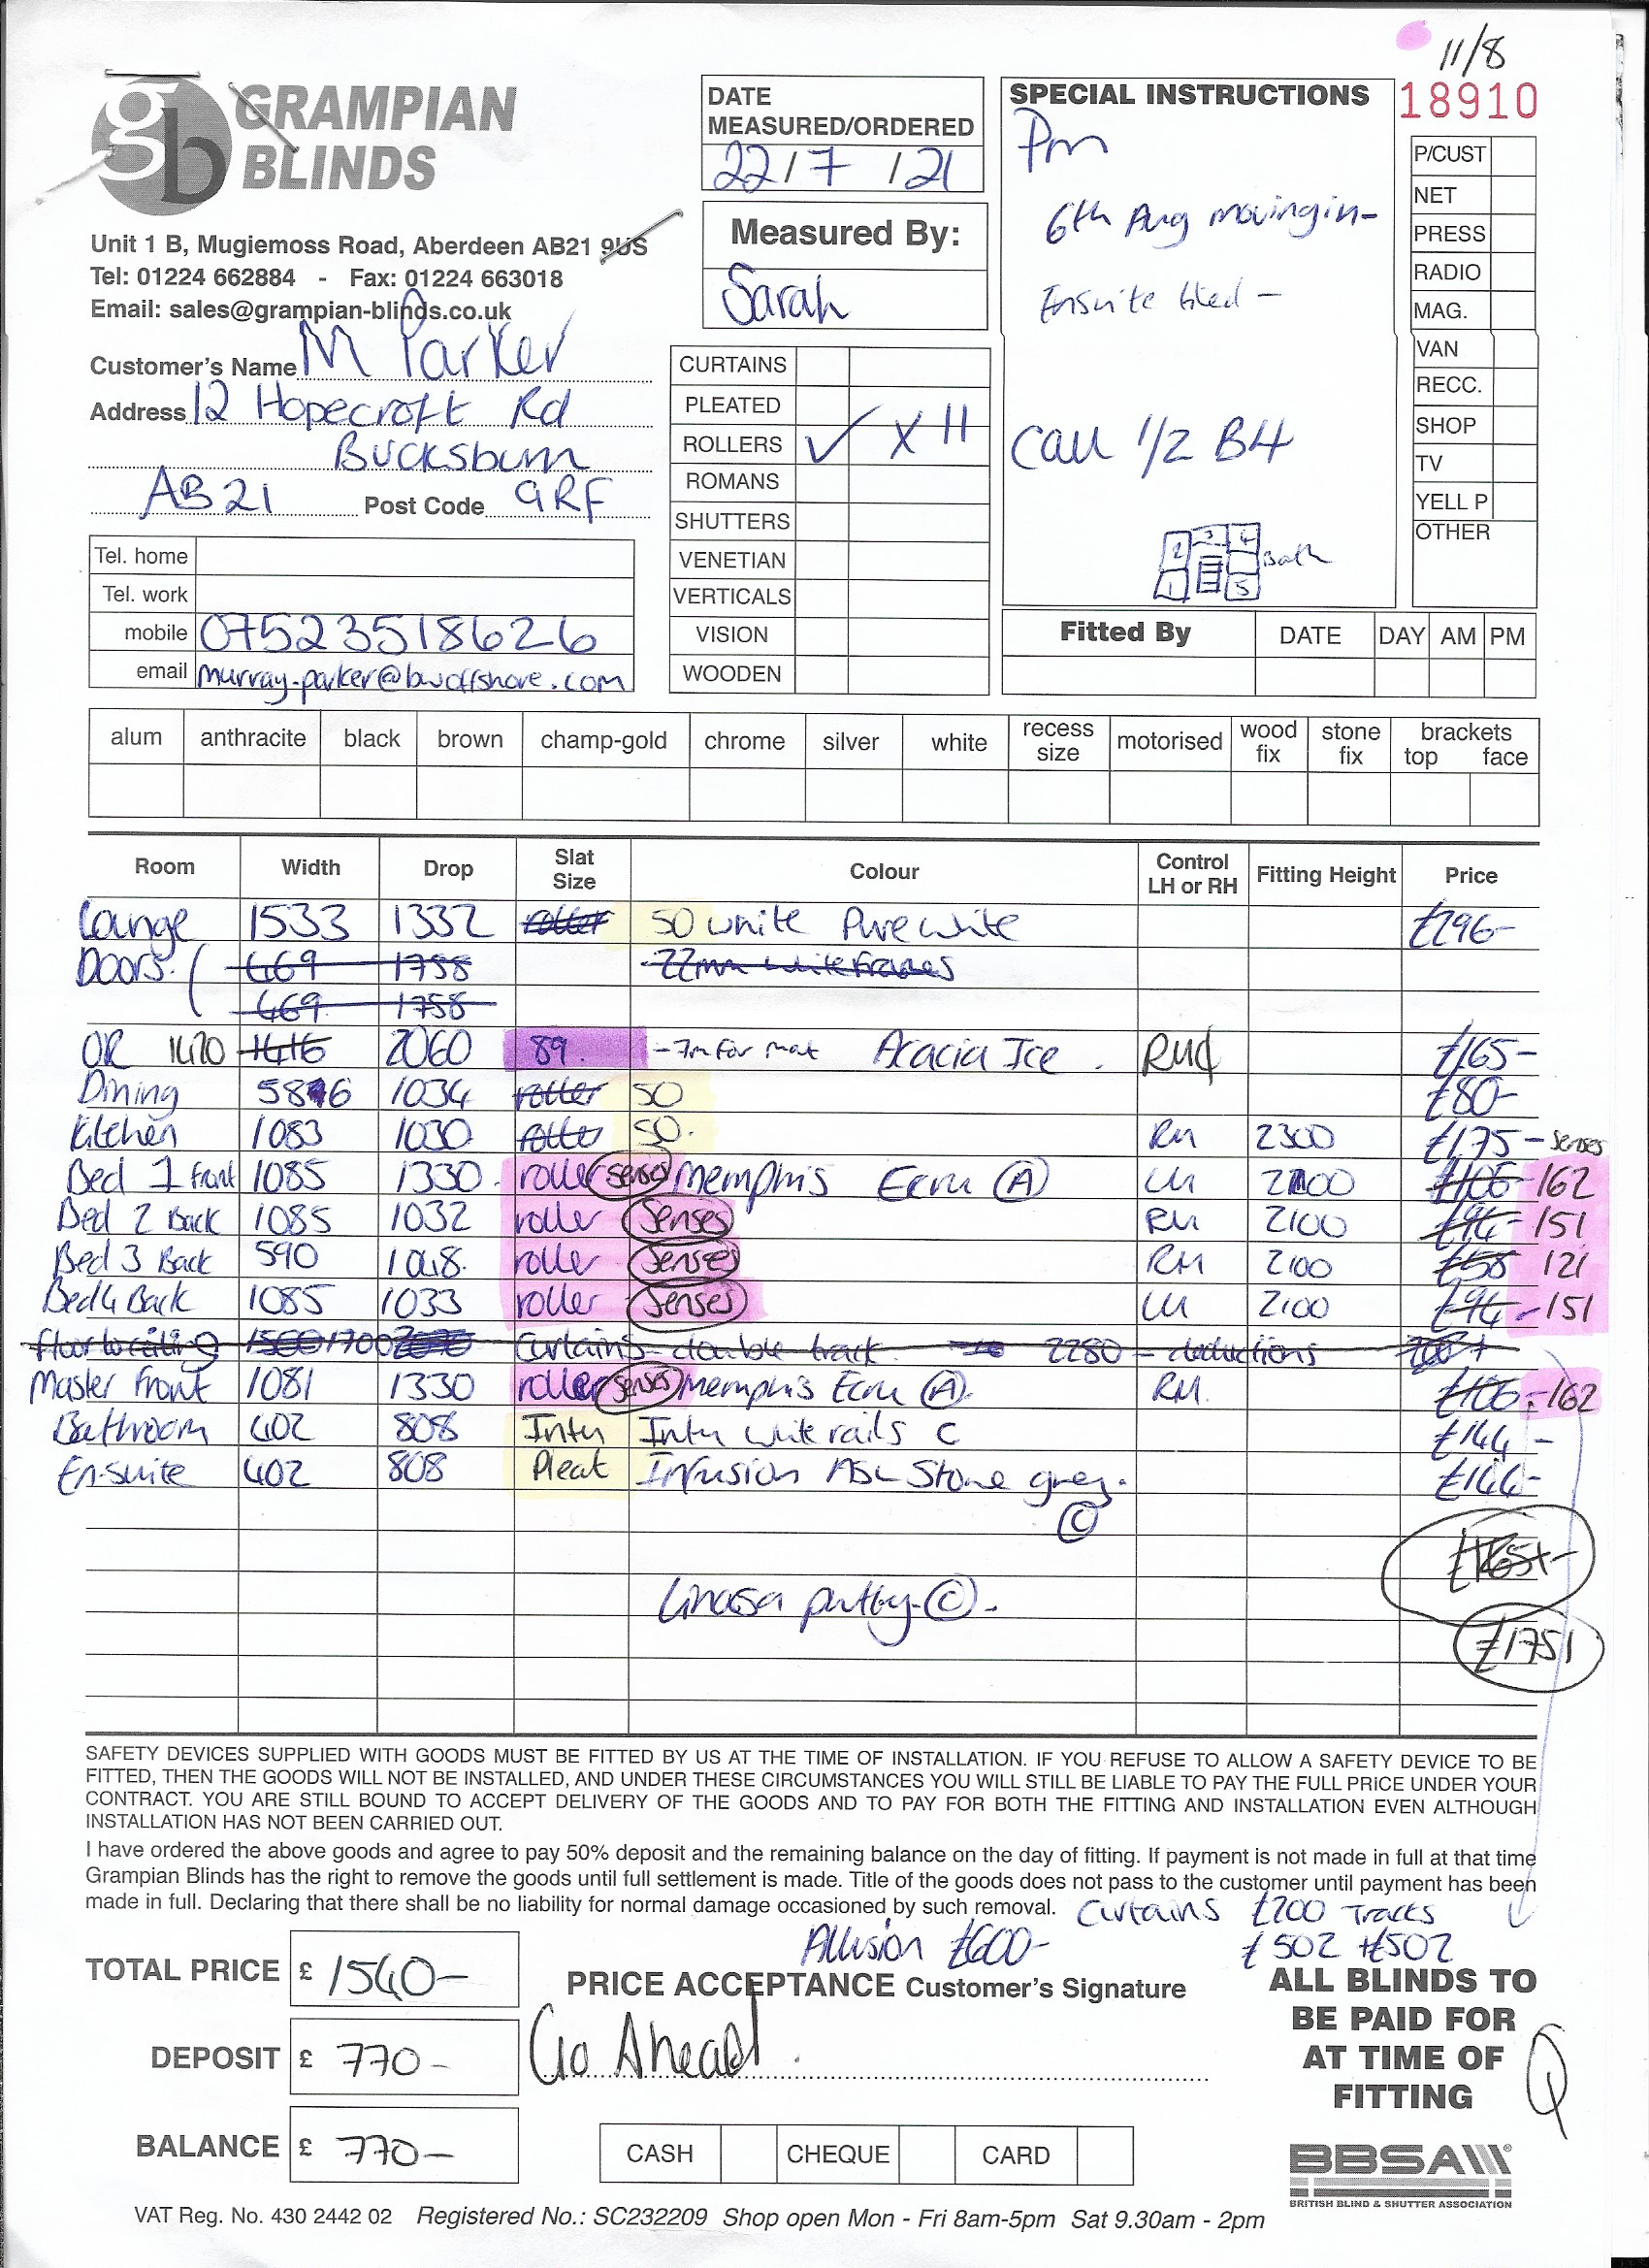 11/8
18910
gb GRAMPIAN BLINDS
Unit 1 B, Mugiemoss Road, Aberdeen AB21 9US
Tel: 01224 662884 - Fax: 01224 663018
Email: sales@grampian-blinds.co.uk
Customer's Name M Parker
Address 12 Hopecroft Rd
Bucksburn
AB21 Post Code 9RF
Tel. home
Tel. work
mobile 07523518626
email murray.parker@bwoffshore.com
DATE MEASURED/ORDERED
22/7/21
Measured By:
Sarah
CURTAINS
PLEATED
ROLLERS ✓ x 11
ROMANS
SHUTTERS
VENETIAN
VERTICALS
VISION
WOODEN
SPECIAL INSTRUCTIONS
Pm
6th Aug moving in-
Ensuite tiled -
Call 1/2 B4
1 2 3 4 5 Bath
P/CUST
NET
PRESS
RADIO
MAG.
VAN
RECC.
SHOP
TV
YELL P
OTHER
Fitted By DATE DAY AM PM
alum anthracite black brown champ-gold chrome silver white recess size motorised wood fix stone fix brackets top face
Room Width Drop Slat Size Colour Control LH or RH Fitting Height Price
Lounge 1533 1332 roller 50 white Pure white £296-
Doors. ( 669 1758 22mm white frames
469 1758
OR 1420 1416 2060 89. Acacia Ice £165-
Dining 586 1034 roller 50 £80-
Kitchen 1083 1030 roller 50. RH 2300 £175- senses
Bed 1 front 1085 1330. roller senses Memphis Ecru (A) LH 2100 £106- 162
Bed 2 Back 1085 1032 roller Senses RH 2100 £94- 151
Bed 3 Back 590 1048. roller Senses RH 2100 £58 121
Bed 4 Back 1085 1033 roller Senses LH 2100 £94- 151
floor to ceiling 1700 Curtains - double track 2280 - deductions
Master Front 1081 1330 roller senses Memphis Ecru (A). RH. £106- 162
Bathroom 402 808 Intu Intu white rails C £144-
En-suite 402 808 Pleat Infusion ASC Stone grey. £144-
(C)
£1651-
Linosa putty (C).
£1751
SAFETY DEVICES SUPPLIED WITH GOODS MUST BE FITTED BY US AT THE TIME OF INSTALLATION. IF YOU REFUSE TO ALLOW A SAFETY DEVICE TO BE
FITTED, THEN THE GOODS WILL NOT BE INSTALLED, AND UNDER THESE CIRCUMSTANCES YOU WILL STILL BE LIABLE TO PAY THE FULL PRICE UNDER YOUR
CONTRACT. YOU ARE STILL BOUND TO ACCEPT DELIVERY OF THE GOODS AND TO PAY FOR BOTH THE FITTING AND INSTALLATION EVEN ALTHOUGH
INSTALLATION HAS NOT BEEN CARRIED OUT.
I have ordered the above goods and agree to pay 50% deposit and the remaining balance on the day of fitting. If payment is not made in full at that time
Grampian Blinds has the right to remove the goods until full settlement is made. Title of the goods does not pass to the customer until payment has been
made in full. Declaring that there shall be no liability for normal damage occasioned by such removal.
Curtains £200 Tracks
Allusion £600- £502 + £502
TOTAL PRICE £ 1540-
DEPOSIT £ 770-
BALANCE £ 770-
PRICE ACCEPTANCE Customer's Signature
Go Ahead.
CASH CHEQUE CARD
ALL BLINDS TO
BE PAID FOR
AT TIME OF
FITTING
BBSA
BRITISH BLIND & SHUTTER ASSOCIATION
VAT Reg. No. 430 2442 02 Registered No.: SC232209 Shop open Mon - Fri 8am-5pm Sat 9.30am - 2pm